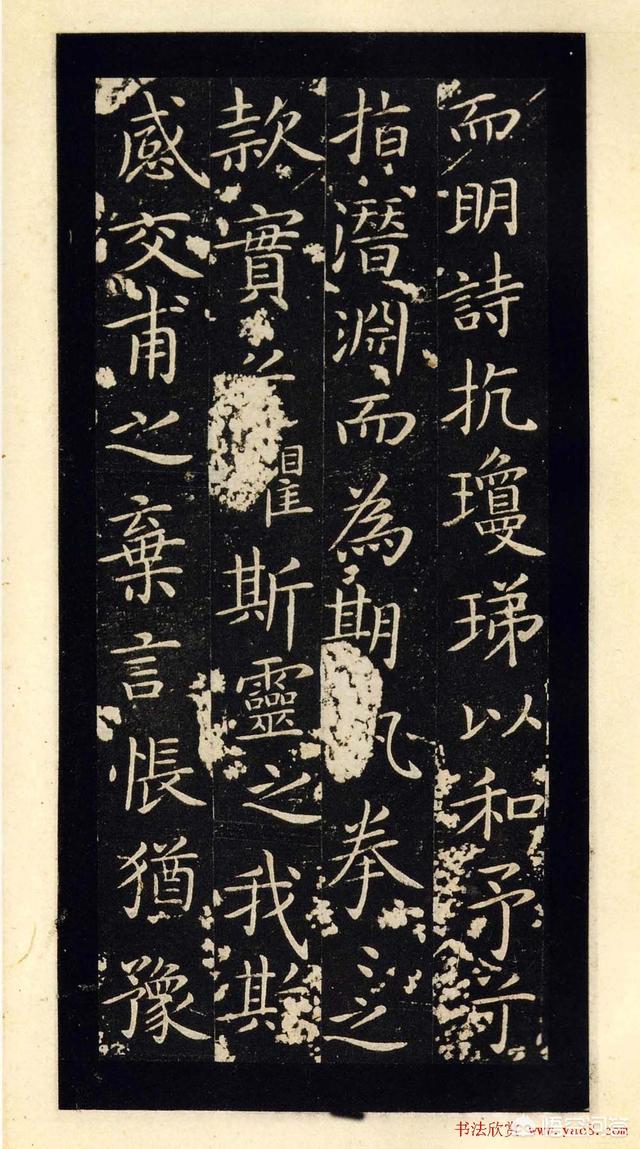 而明詩抗瓊珶以和予兮
指潛淵而為期拳〻之
款實斯靈之我
感交甫之棄言悵猶豫
悟空问答
书法欣赏 www.yac8.com